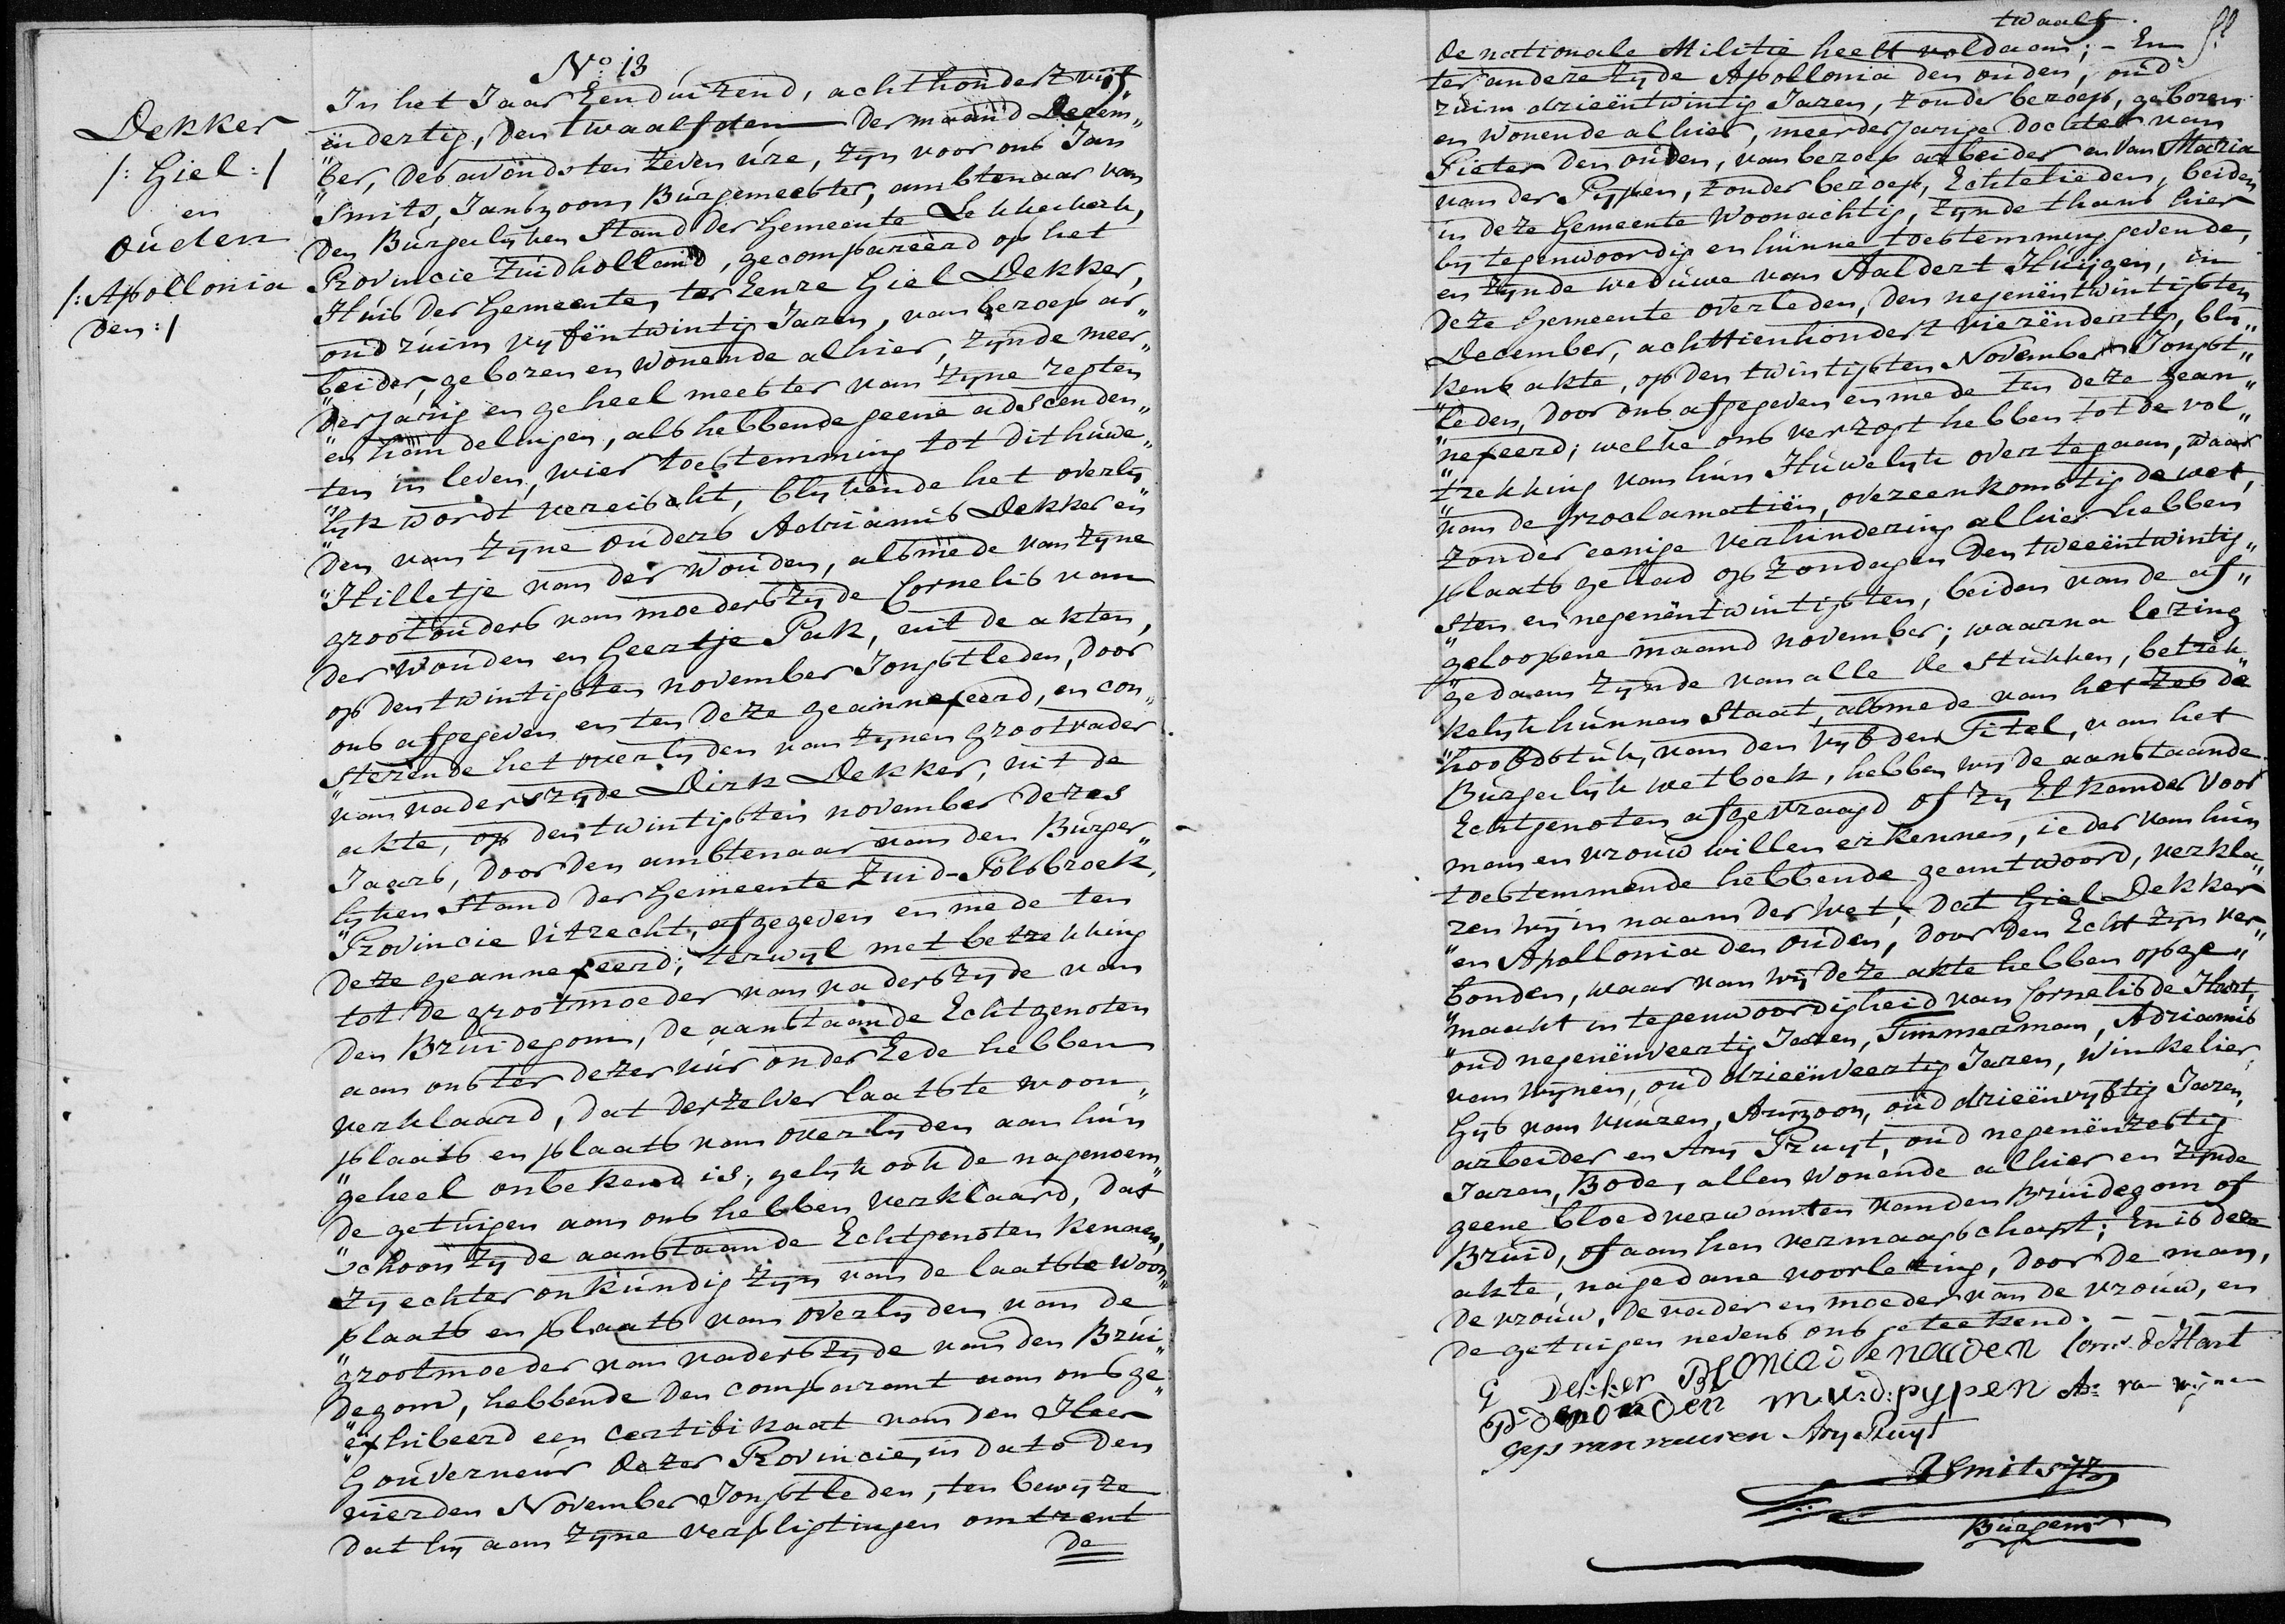 No: 13
Dekker
/: Giel :/
en
ouden
/: Apollonia
den :/
In het Jaar Eenduizend, achthondert vijf
"endertig, den twaalfden der maand Decem"
"ber, des avonds ten zeven ure, zyn voor ons Jan
Smits, Janszoon Burgemeester, ambtenaar van
den Burgerlyken Stand der Gemeente Lekkerkerk,
Provincie Zuidholland, gecompareerd op het
Huis der Gemeente, ter Eenre Giel Dekker,
oud ruim vyfentwintig Jaren, van beroep ar"
"beider, geboren en wonende alhier, zynde meer"
"derjarig en geheel meester van zyne regten
en handelingen, als hebbende geene adscenden"
ten in leven, wier toestemming tot dit huwe"
"lyk wordt vereischt, blykende het overly"
"den van zyne ouders Adrianus Dekker en
Hilletje van der Wouden, alsmede van zyne
grootouders van moederszyde Cornelis van
der Wouden en Geertje Pak, uit de akten,
op den twintigsten november Jongstleden, door
ons afgegeven en ten deze geannexeerd, en con"
sterende het overlyden van zynen Grootvader
van vaderszyde Dirk Dekker, uit de
akte, op den twintigsten november dezes
Jaars, door den ambtenaar van den Burger"
lyken Stand der Gemeente Zuid-Polsbroek,
Provincie Utrecht, afgegeven en mede ten
deze geannexeerd; terwyl met betrekking
tot de grootmoeder van vaderszyde van
den Bruidegom, de aanstaande Echtgenoten
aan ons ter dezer uur onder Eede hebben
verklaard, dat derzelver laatste woon"
plaats en plaats van overlyden aan hun
geheel onbekend is, gelyk ook de nagenoem"
de getuigen aan ons hebben verklaard, dat
schoon zy de aanstaande Echtgenoten kennen,
zy echter onkundig zyn van de laatste woon"
plaats en plaats van overlyden van de
grootmoeder van vaderszyde van den Brui"
degom, hebbende den comparant aan ons ge"
"exhibeerd een certifikaat van den Heer
Gouverneur dezer Provincie, in dato den
vierden November Jongstleden, ten bewyze
dat hy aan zyne verpligtingen omtrent
de
twaalf.
de nationale Militie heeft voldaan; - En
ter andere zyde Apollonia den ouden, oud
ruim drieentwintig Jaren, zonder beroep, geboren
en wonende alhier, meerderjarige dochter van
Pieter den ouden, van beroep arbeider en van Maria
van der Pypen, zonder beroep, Echtelieden, beiden
in deze Gemeente Woonachtig, zynde thans hier
by tegenwoordig en hunne toestemming gevende,
en zynde weduwe van Aaldert Huijgen, in
deze Gemeente overleden, den negenentwintigsten
December, achttienhondert vierendertig, bly"
kens akte, op den twintigsten November Jongst"
leden, door ons afgegeven en mede ten deze gean"
"nexeerd; welke ons verzogt hebben tot de vol"
trekking van hun Huwelyk over te gaan, waar
van de proclamatien, overeenkomstig de wet,
zonder eenige verhindering alhier hebben
plaats gehad op Zondagen den tweeentwintig"
sten en negenentwintigsten, beiden van de af"
geloopene maand november; waarna lezing
gedaan zynde van alle de stukken, betrek"
kelyk hunnen Staat alsmede van het zesde
hoofdstuk, van den vyfden Titel, van het
Burgerlyk wetboek, hebben wy de aanstaande
Echtgenoten afgevraagd of zy Elkander voor
man en vrouw willen erkennen, ieder van hun
toestemmende hebbende geantwoord, verkla"
ren wy in naam der Wet, dat Giel Dekker
en Apollonia den ouden, door den Echt zyn ver"
bonden, waar van wy deze akte hebben opge"
"maakt in tegenwoordigheid van Cornelis de Hart,
oud negenenveertig Jaren, Timmerman, Adrianus
van Wynen, oud drieenveertig Jaren, Winkelier,
Gys van Vuuren, Aryzoon, oud drieenvyftig Jaren,
arbeider en Ary Pruyt, oud negenenzestig
Jaren, Bode, allen wonende alhier en zynde
geene bloedverwanten van den Bruidegom of
Bruid, of aan hen vermaagschapt; En is deze
akte, na gedane voorlezing, door de man,
de vrouw, de vader en moeder van de vrouw, en
de getuigen nevens ons geteekend.
G Dekker Corn. d Hart
P den ouden m.v.d: pypen As van wijnen
Gijs van vuuren Ary Pruyt
JSmits JZ
Burgemr